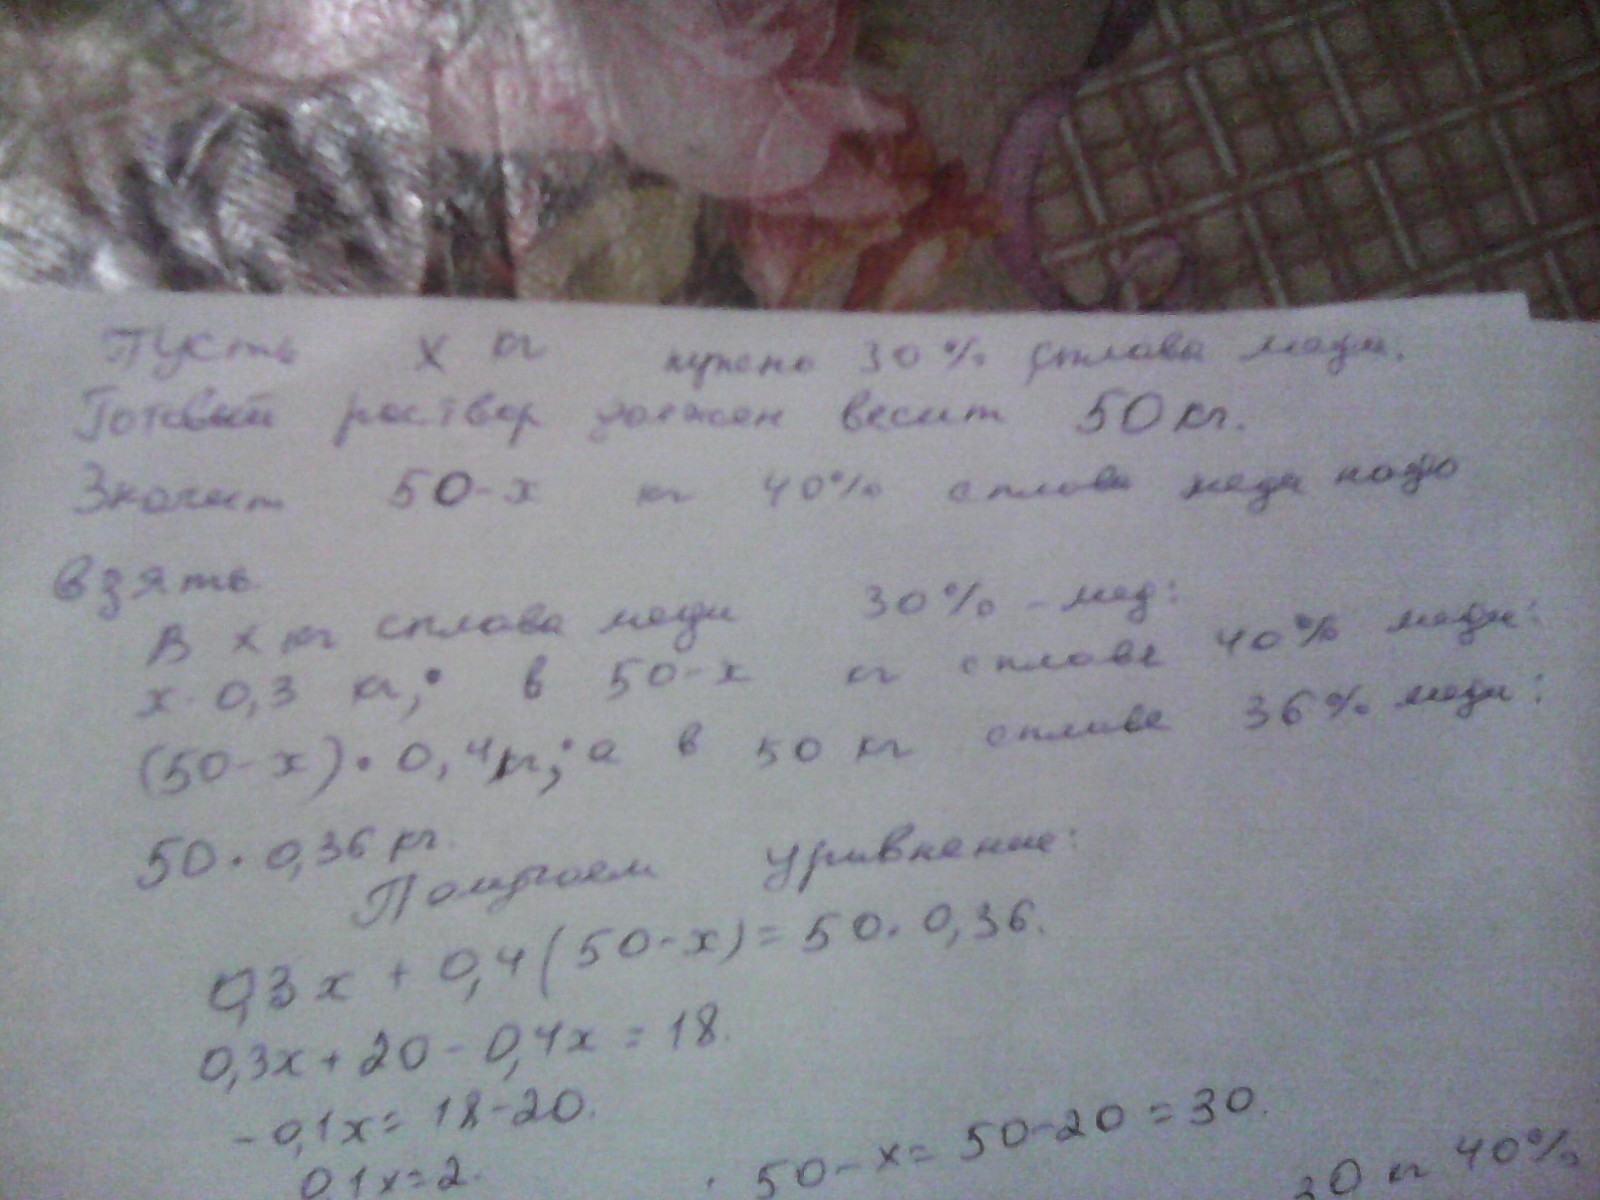 Пусть х кг нужно 30% сплава меди.
Готовый раствор должен весит 50 кг.
Значит 50-х кг 40% сплава меди надо
взять.
В х кг сплава меди 30% - мед:
х·0,3 кг; в 50-х кг сплаве 40% меди:
(50-х)·0,4кг; а в 50 кг сплаве 36% меди:
50·0,36 кг.
Получаем уравнение:
0,3х + 0,4(50-х)=50·0,36.
0,3х+20-0,4х=18.
-0,1х=18-20.
0,1х=2. 50-х=50-20=30.
кг 40%